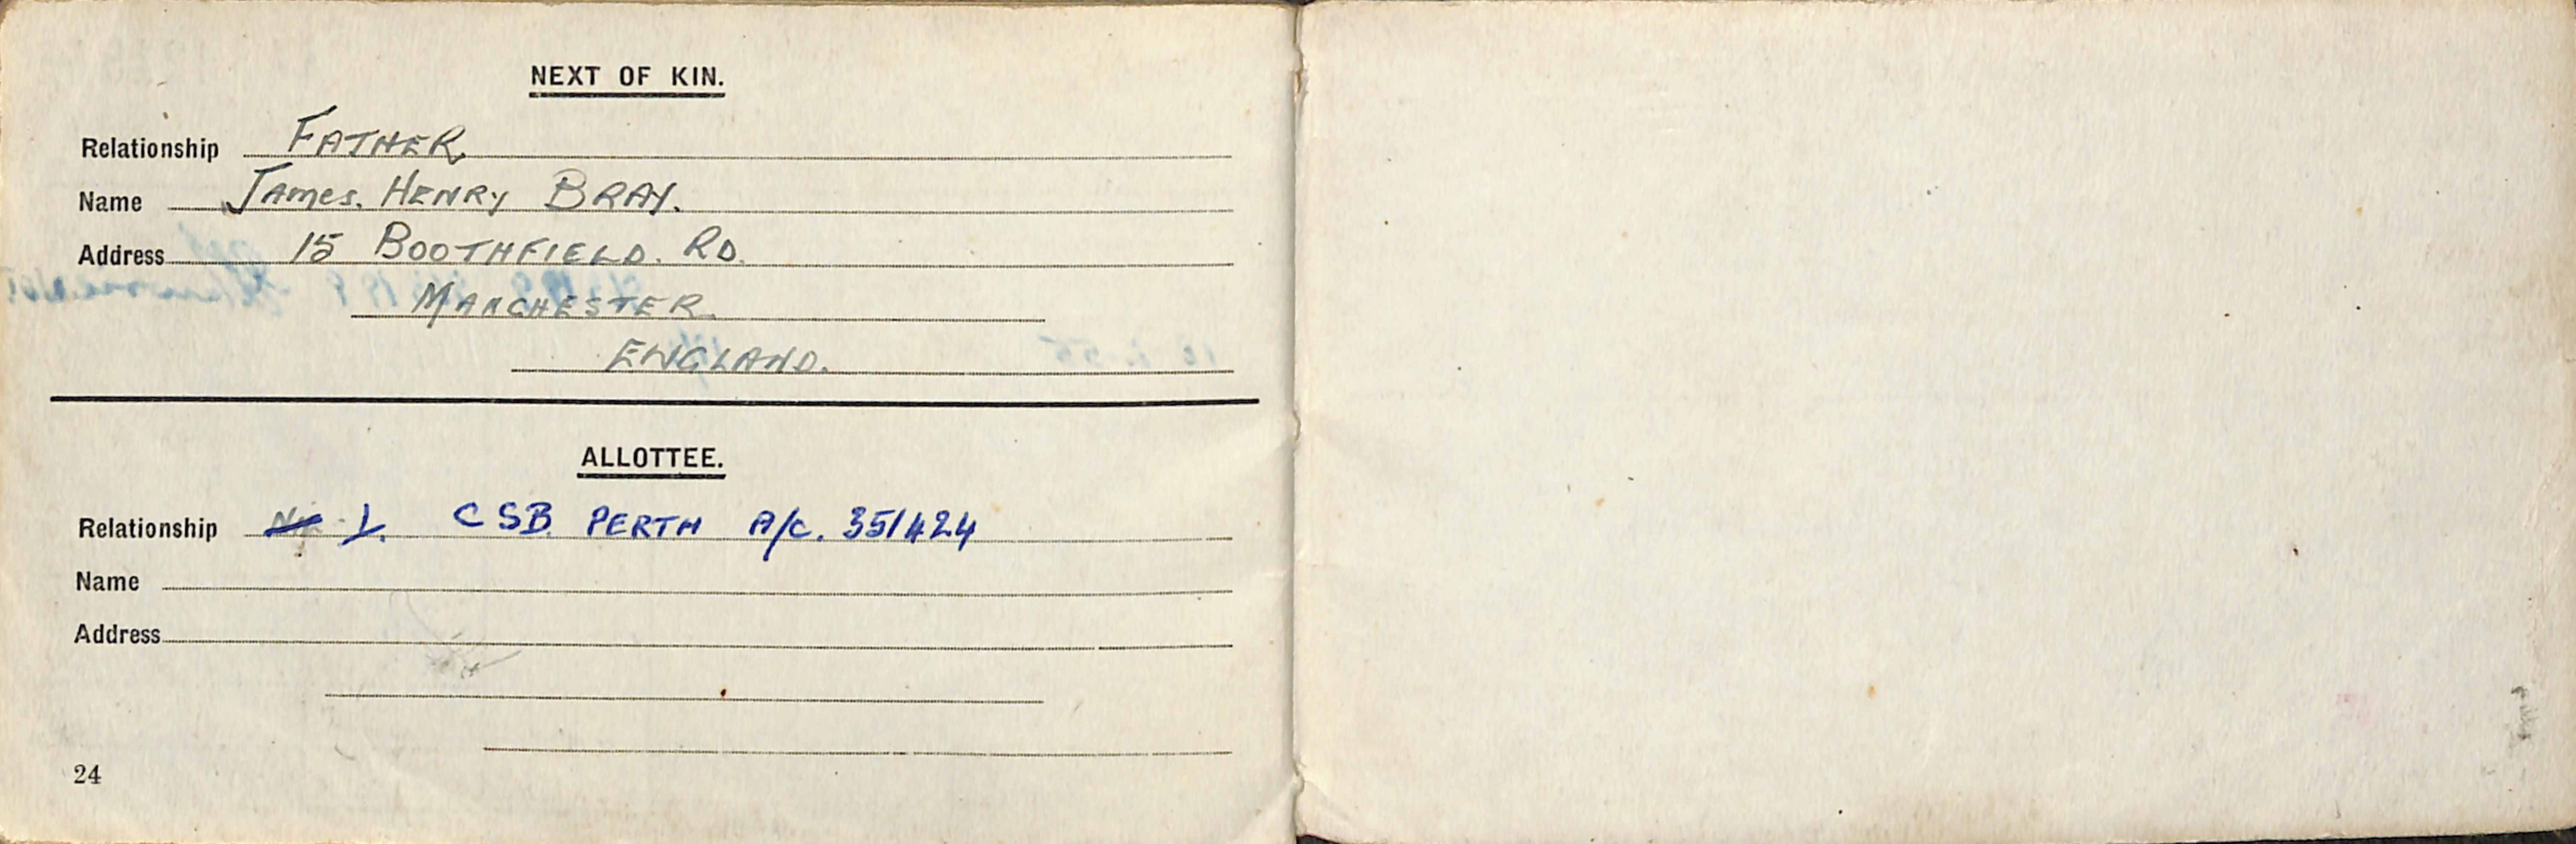 NEXT OF KIN.
Relationship FATHER
Name James. HENRY BRAY.
Address 15 BOOTHFIELD. RD.
MANCHESTER
ENGLAND.
ALLOTTEE.
Relationship 1. CSB. PERTH A/C. 351424
Name
Address
24